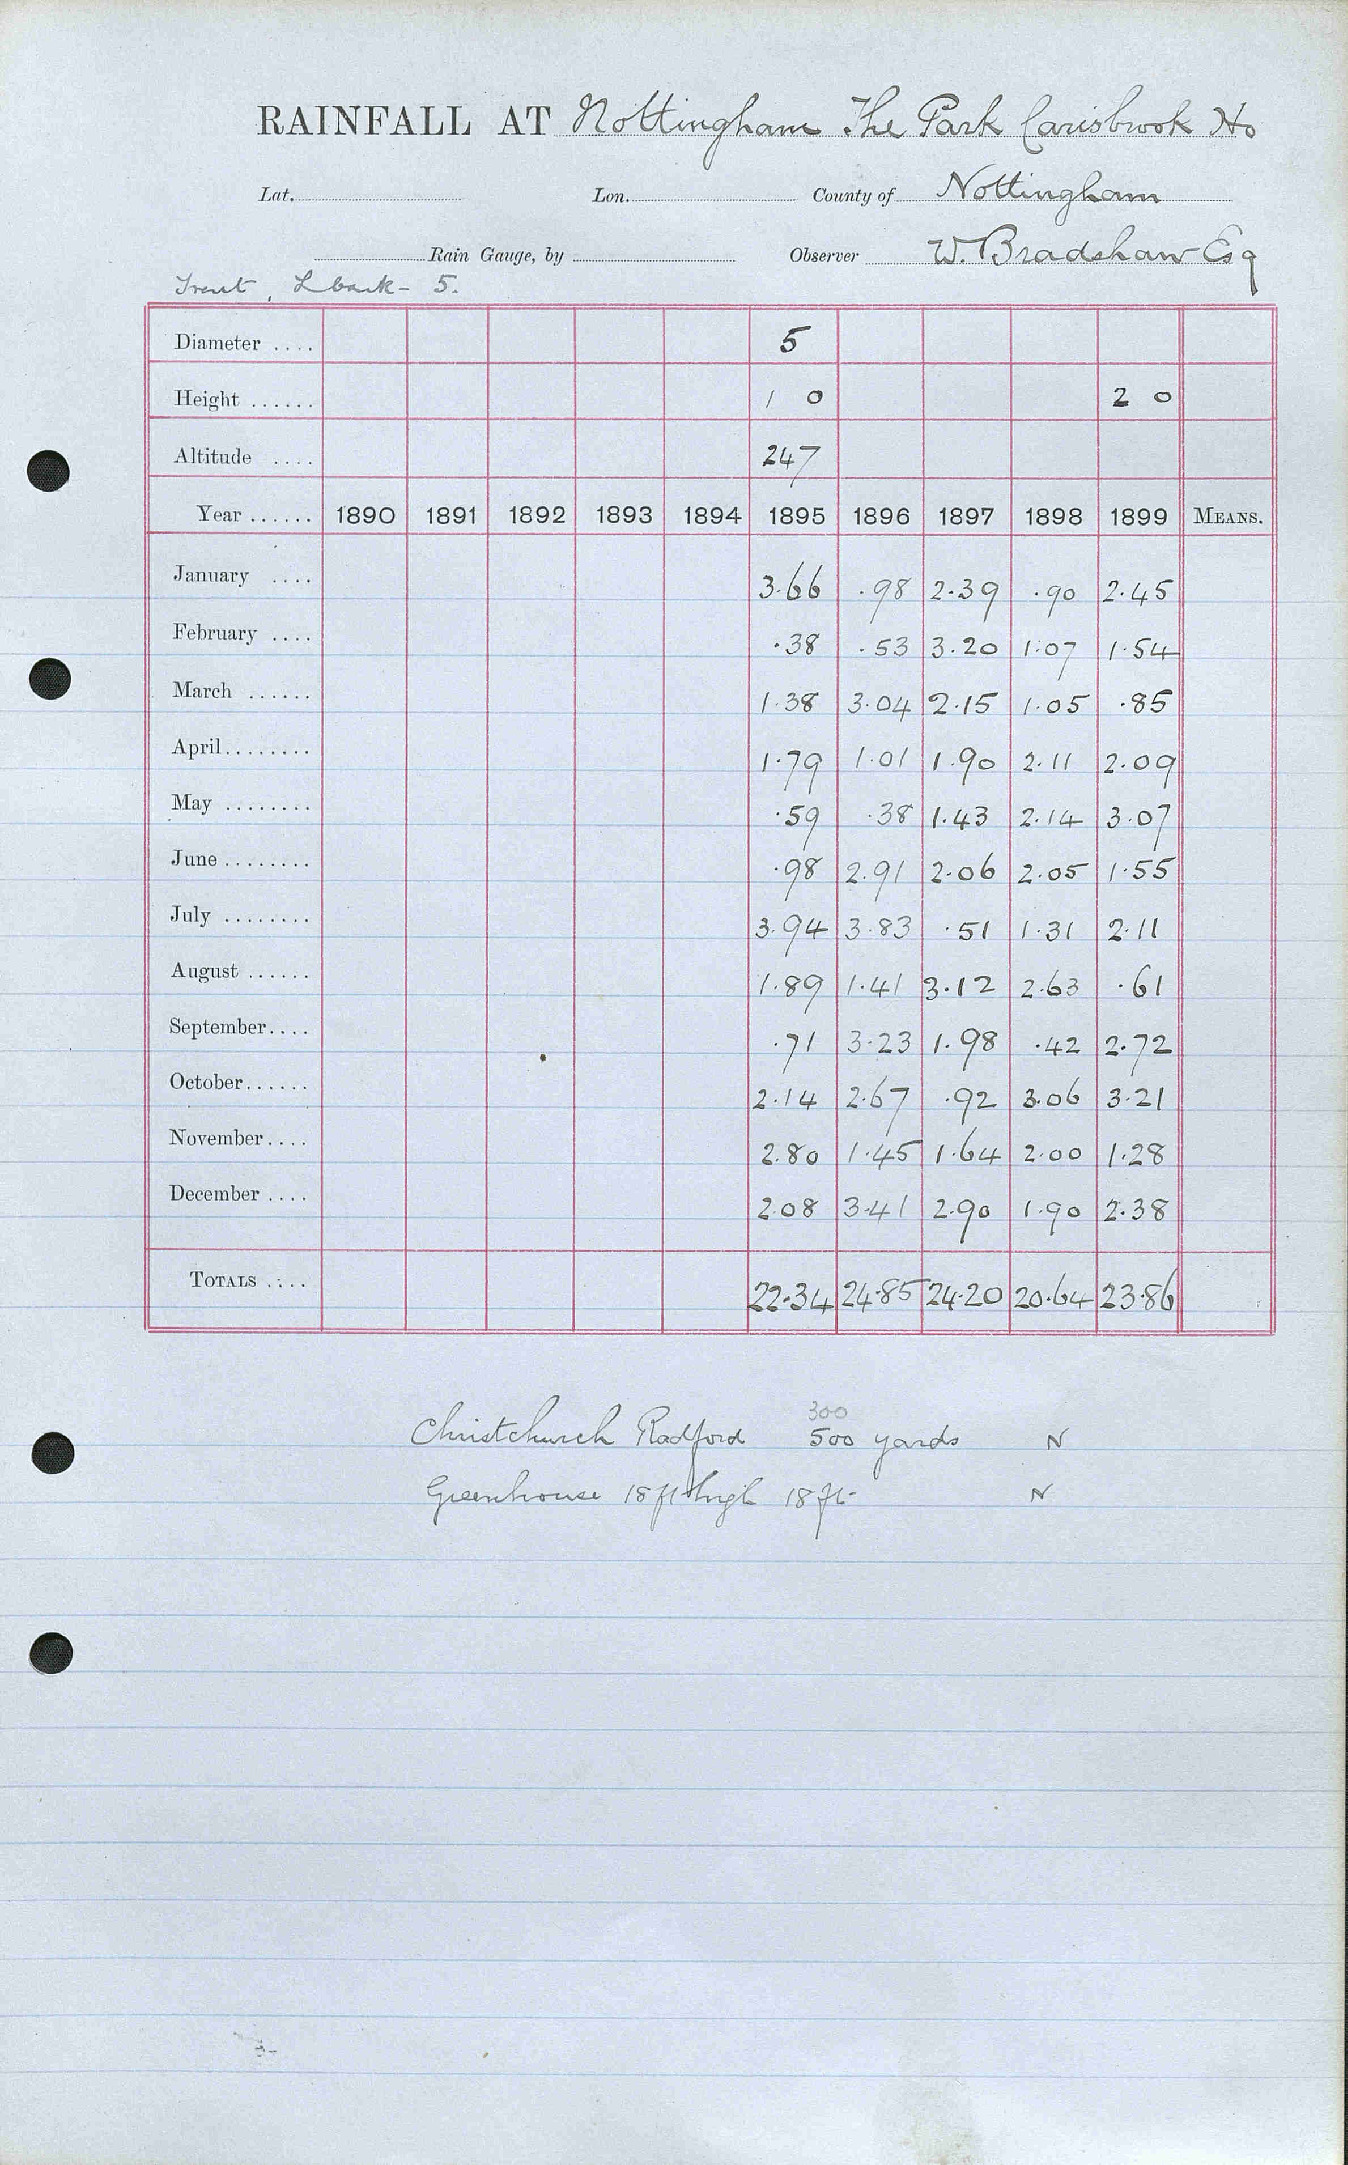 RAINFALL AT Nottingham The Park Carisbrook Ho
Lat. Lon. County of Nottingham
Rain Gauge, by Observer W. Bradshaw Esq
Trent, L bank - 5.
Diameter .... 5
Height ...... 1 0 2 0
Altitude .... 247
Year ...... 1890 1891 1892 1893 1894 1895 1896 1897 1898 1899 MEANS.
January .... 3.66 .98 2.39 .90 2.45
February .... .38 .53 3.20 1.07 1.54
March ...... 1.38 3.04 2.15 1.05 .85
April........ 1.79 1.01 1.90 2.11 2.09
May ........ .59 .38 1.43 2.14 3.07
June ........ .98 2.91 2.06 2.05 1.55
July ........ 3.94 3.83 .51 1.31 2.11
August ...... 1.89 1.41 3.12 2.63 .61
September.... .71 3.23 1.98 .42 2.72
October...... 2.14 2.67 .92 3.06 3.21
November.... 2.80 1.45 1.64 2.00 1.28
December .... 2.08 3.41 2.90 1.90 2.38
TOTALS .... 22.34 24.85 24.20 20.64 23.86
300
Christchurch Radford 500 yards N
Greenhouse 18 ft high 18 ft. N